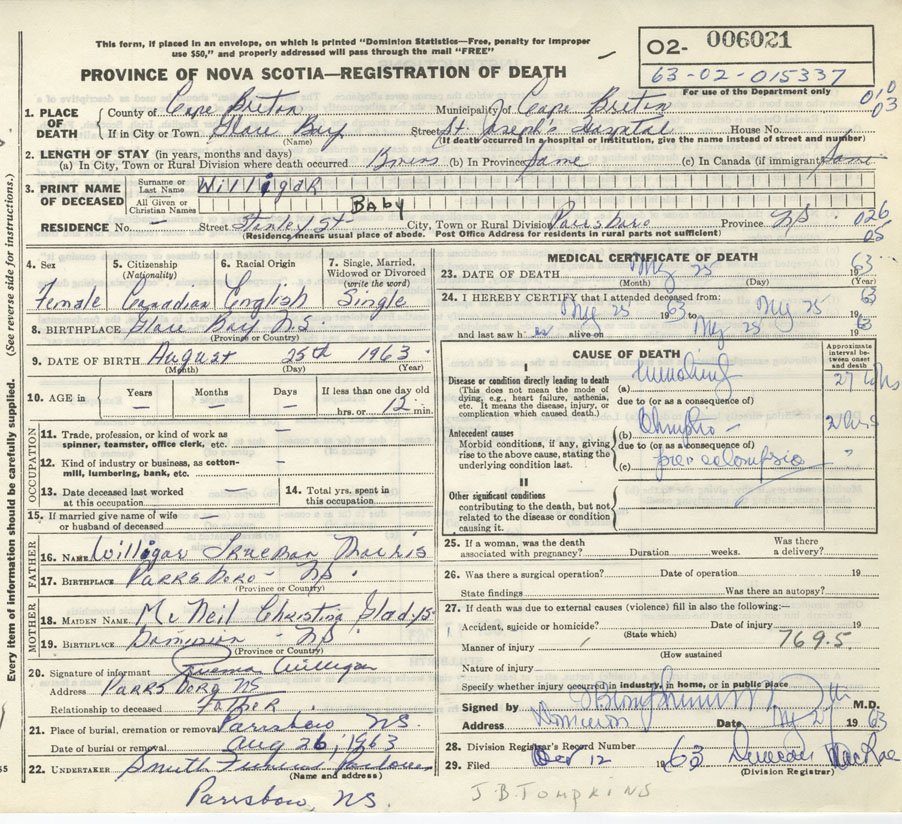 This form, if placed in an envelope, on which is printed "Dominion Statistics—Free, penalty for improper
use $50," and properly addressed will pass through the mail "FREE"
PROVINCE OF NOVA SCOTIA—REGISTRATION OF DEATH
O2- 006021
63-02-015337
For use of the Department only
010
03
1. PLACE OF DEATH
County of Cape Breton Municipality of Cape Breton
If in City or Town Glace Bay Street St. Joseph's Hospital House No.
(Name) (If death occurred in a hospital or institution, give the name instead of street and number)
2. LENGTH OF STAY (in years, months and days)
(a) In City, Town or Rural Division where death occurred (b) In Province Same (c) In Canada (if immigrant) Same
3. PRINT NAME OF DECEASED
Surname or Last Name Willigar
All Given or Christian Names BABY
RESIDENCE No. — Street Stanley St City, Town or Rural Division Parrsboro Province NS
026
05
(Residence means usual place of abode. Post Office Address for residents in rural parts not sufficient)
4. Sex 5. Citizenship (Nationality) 6. Racial Origin 7. Single, Married, Widowed or Divorced (write the word)
Female Canadian English Single
8. BIRTHPLACE Glace Bay N.S.
(Province or Country)
9. DATE OF BIRTH August 25th 1963
(Month) (Day) (Year)
10. AGE in Years — Months — Days — If less than one day old
hrs. or 12 min.
OCCUPATION
11. Trade, profession, or kind of work as spinner, teamster, office clerk, etc. —
12. Kind of industry or business, as cotton-mill, lumbering, bank, etc. —
13. Date deceased last worked at this occupation —
14. Total yrs. spent in this occupation —
15. If married give name of wife or husband of deceased —
FATHER
16. NAME Willigar Trueman
17. BIRTHPLACE PARRSBORO - NS.
(Province or Country)
MOTHER
18. MAIDEN NAME McNeil Christina Gladys
19. BIRTHPLACE Dominion - NS
(Province or Country)
20. Signature of informant Trueman Willigar
Address PARRSBORO NS
Relationship to deceased Father
21. Place of burial, cremation or removal Parrsboro NS.
Date of burial or removal Aug 26, 1963
22. UNDERTAKER Smith Funeral Parlours
(Name and address)
Parrsboro, NS.
Every item of information should be carefully supplied. (See reverse side for instructions.)
MEDICAL CERTIFICATE OF DEATH
23. DATE OF DEATH 25 1963
(Month) (Day) (Year)
24. I HEREBY CERTIFY that I attended deceased from:
25 1963 to 25 63
and last saw h er alive on 25 1963
CAUSE OF DEATH
Approximate interval between onset and death
I
Disease or condition directly leading to death
(This does not mean the mode of dying, e.g., heart failure, asthenia, etc. It means the disease, injury, or complication which caused death.)
(a) 27
due to (or as a consequence of)
Antecedent causes
Morbid conditions, if any, giving rise to the above cause, stating the underlying condition last.
(b)
due to (or as a consequence of)
(c)
II
Other significant conditions
contributing to the death, but not related to the disease or condition causing it.
25. If a woman, was the death associated with pregnancy? Duration weeks. Was there a delivery?
26. Was there a surgical operation? Date of operation 19
State findings Was there an autopsy?
27. If death was due to external causes (violence) fill in also the following:—
Accident, suicide or homicide? Date of injury 19
(State which)
Manner of injury 769.5
(How sustained
Nature of injury
Specify whether injury occurred in industry, in home, or in public place
Signed by M.D.
Address Dominion Date 27 1963
28. Division Registrar's Record Number
29. Filed 12 1963 Duncan MacRae
(Division Registrar)
J.B. TOMPKINS